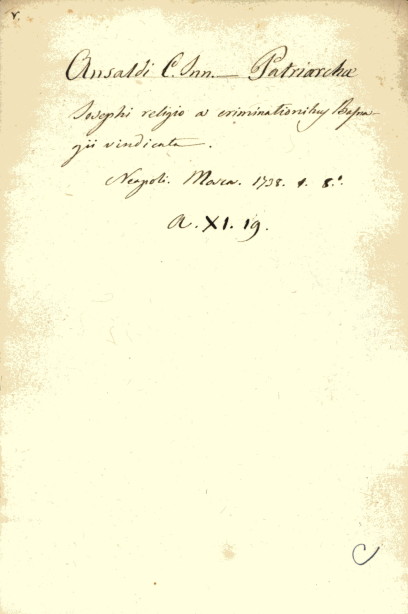 v.
Ansaldi C. Inn. — Patriarchæ
Josephi religio a criminationibus Basna-
gii vindicata.
Neapoli. Mosca. 1738. 8.º
A. XI. 19.
C